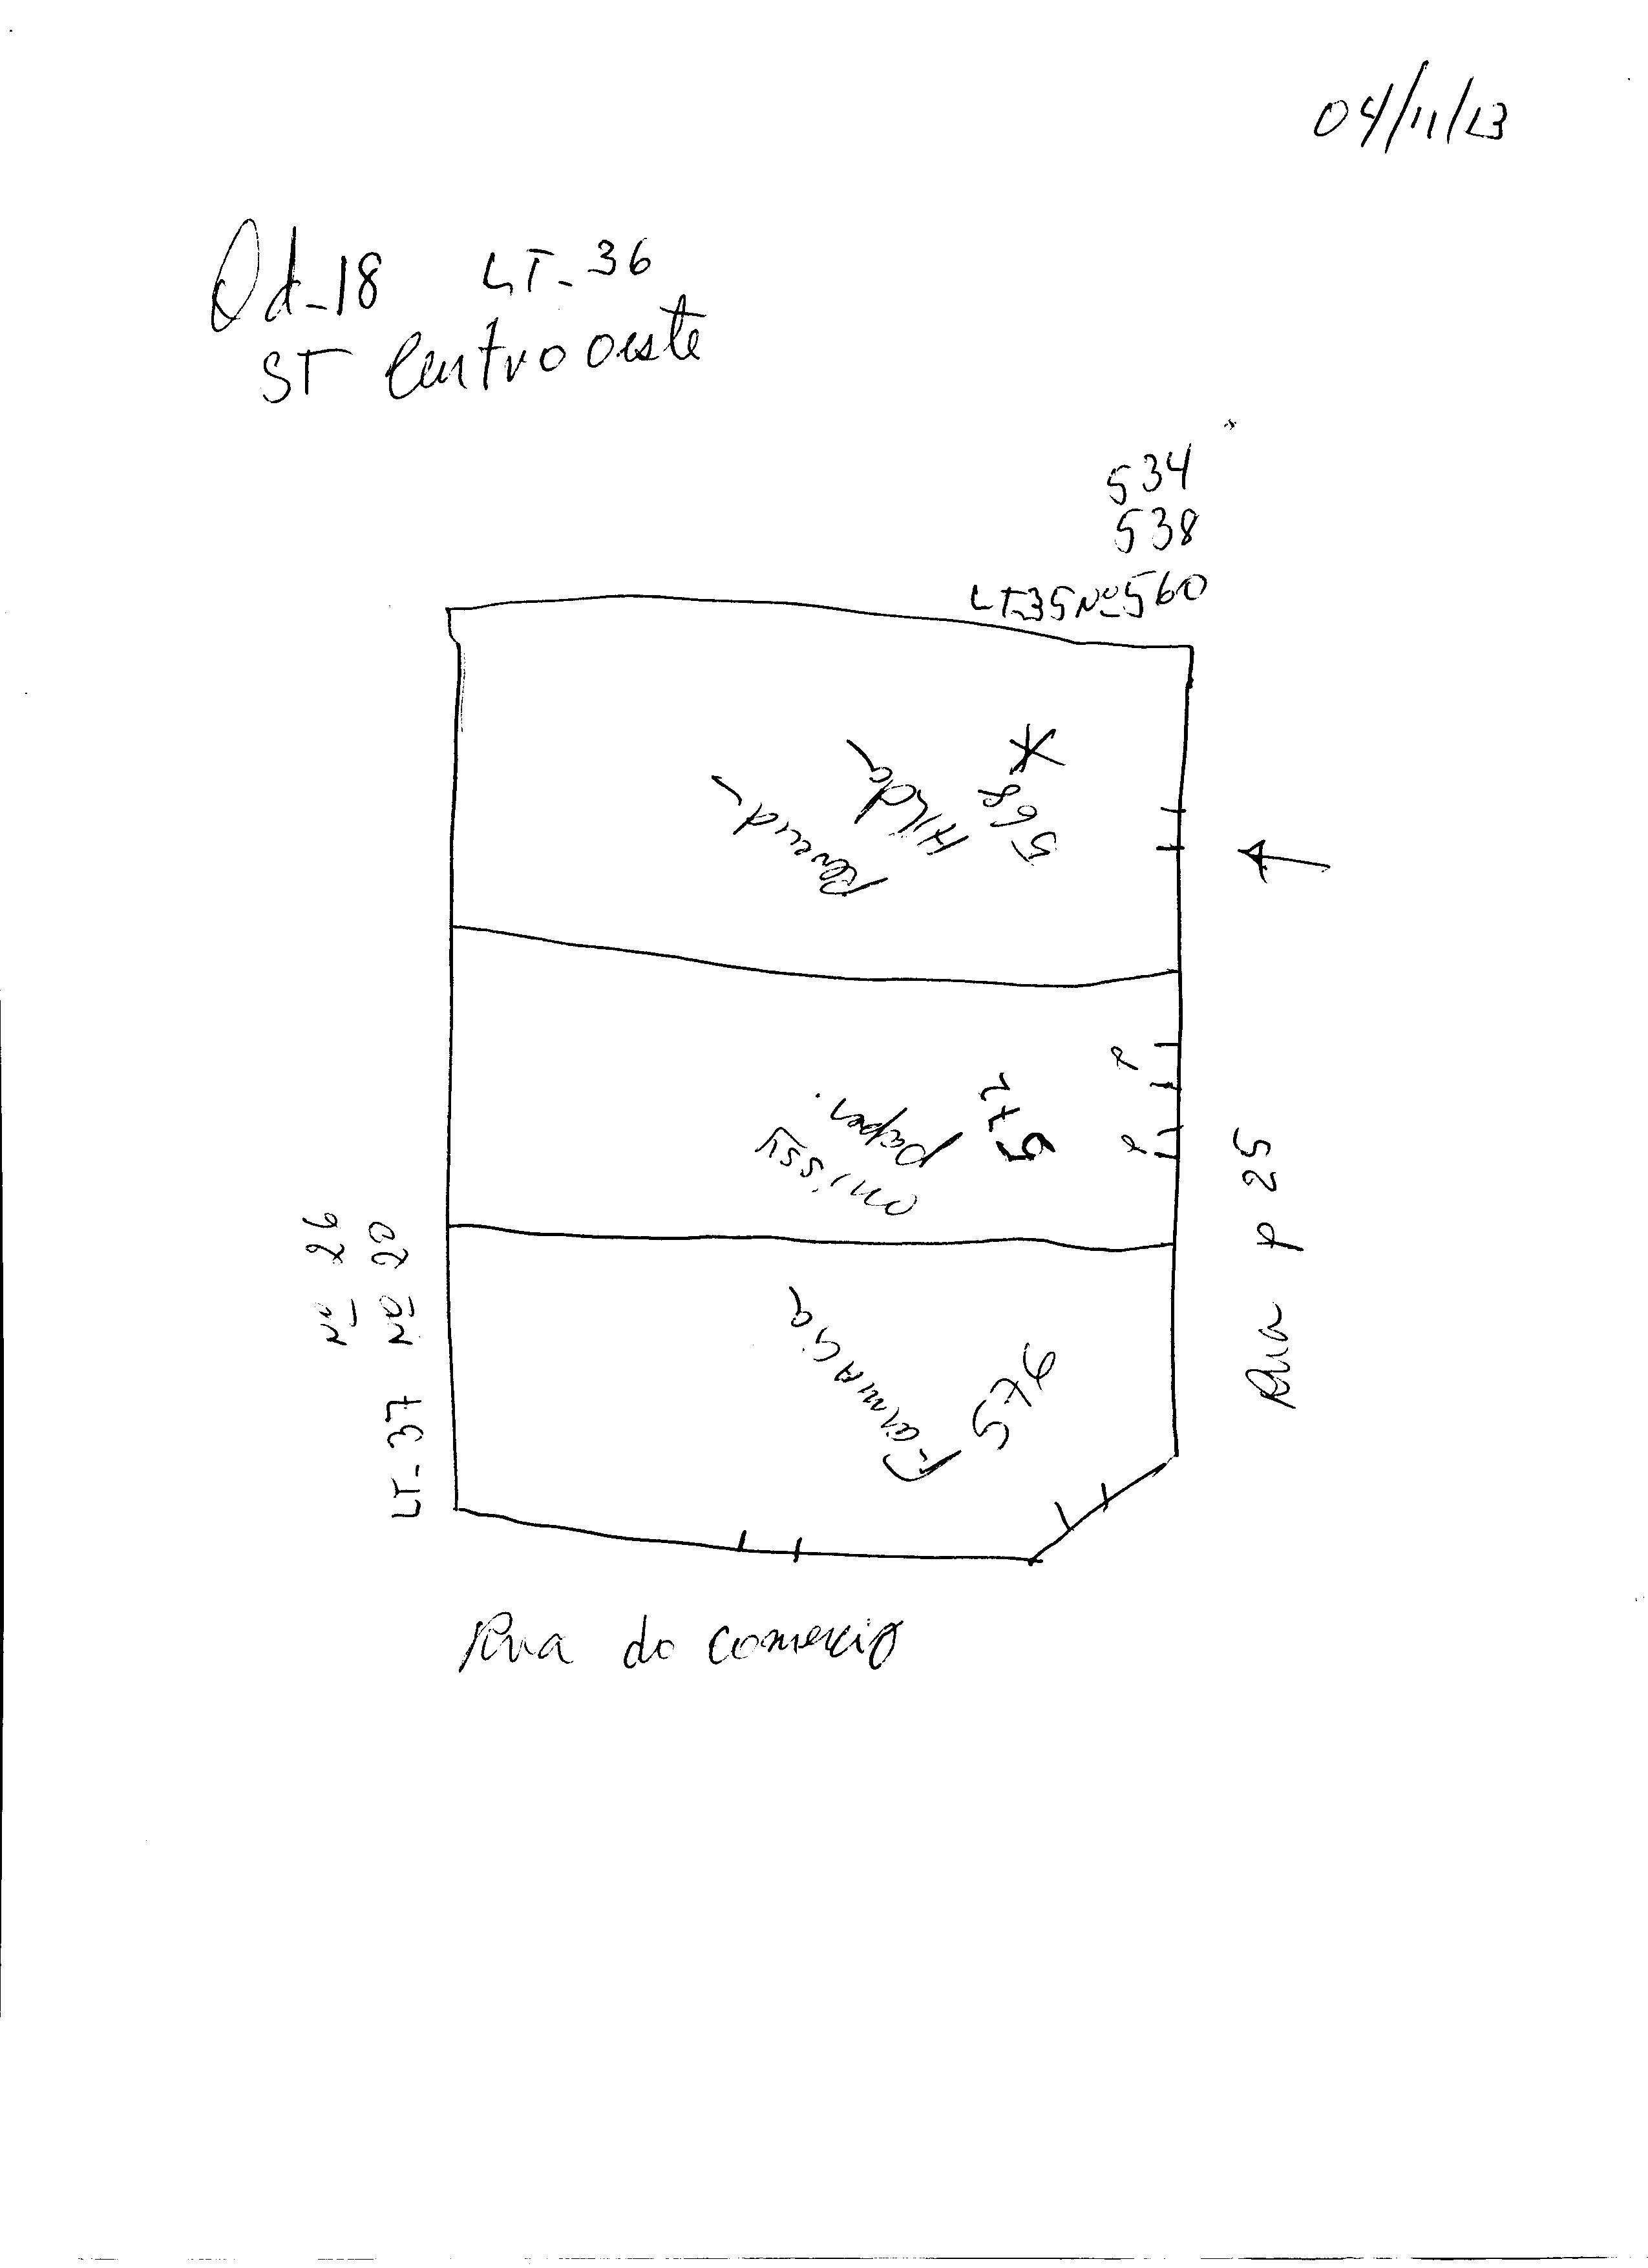 04/11/13
Qd-18 LT-36
ST Centro oeste
534
538
LT35 Nº 560
*
568
Hilda
572
paper.
576
Farmacia
Nº 26
LT-37 Nº 20
Rua P 25
P
P
Rua do comercio